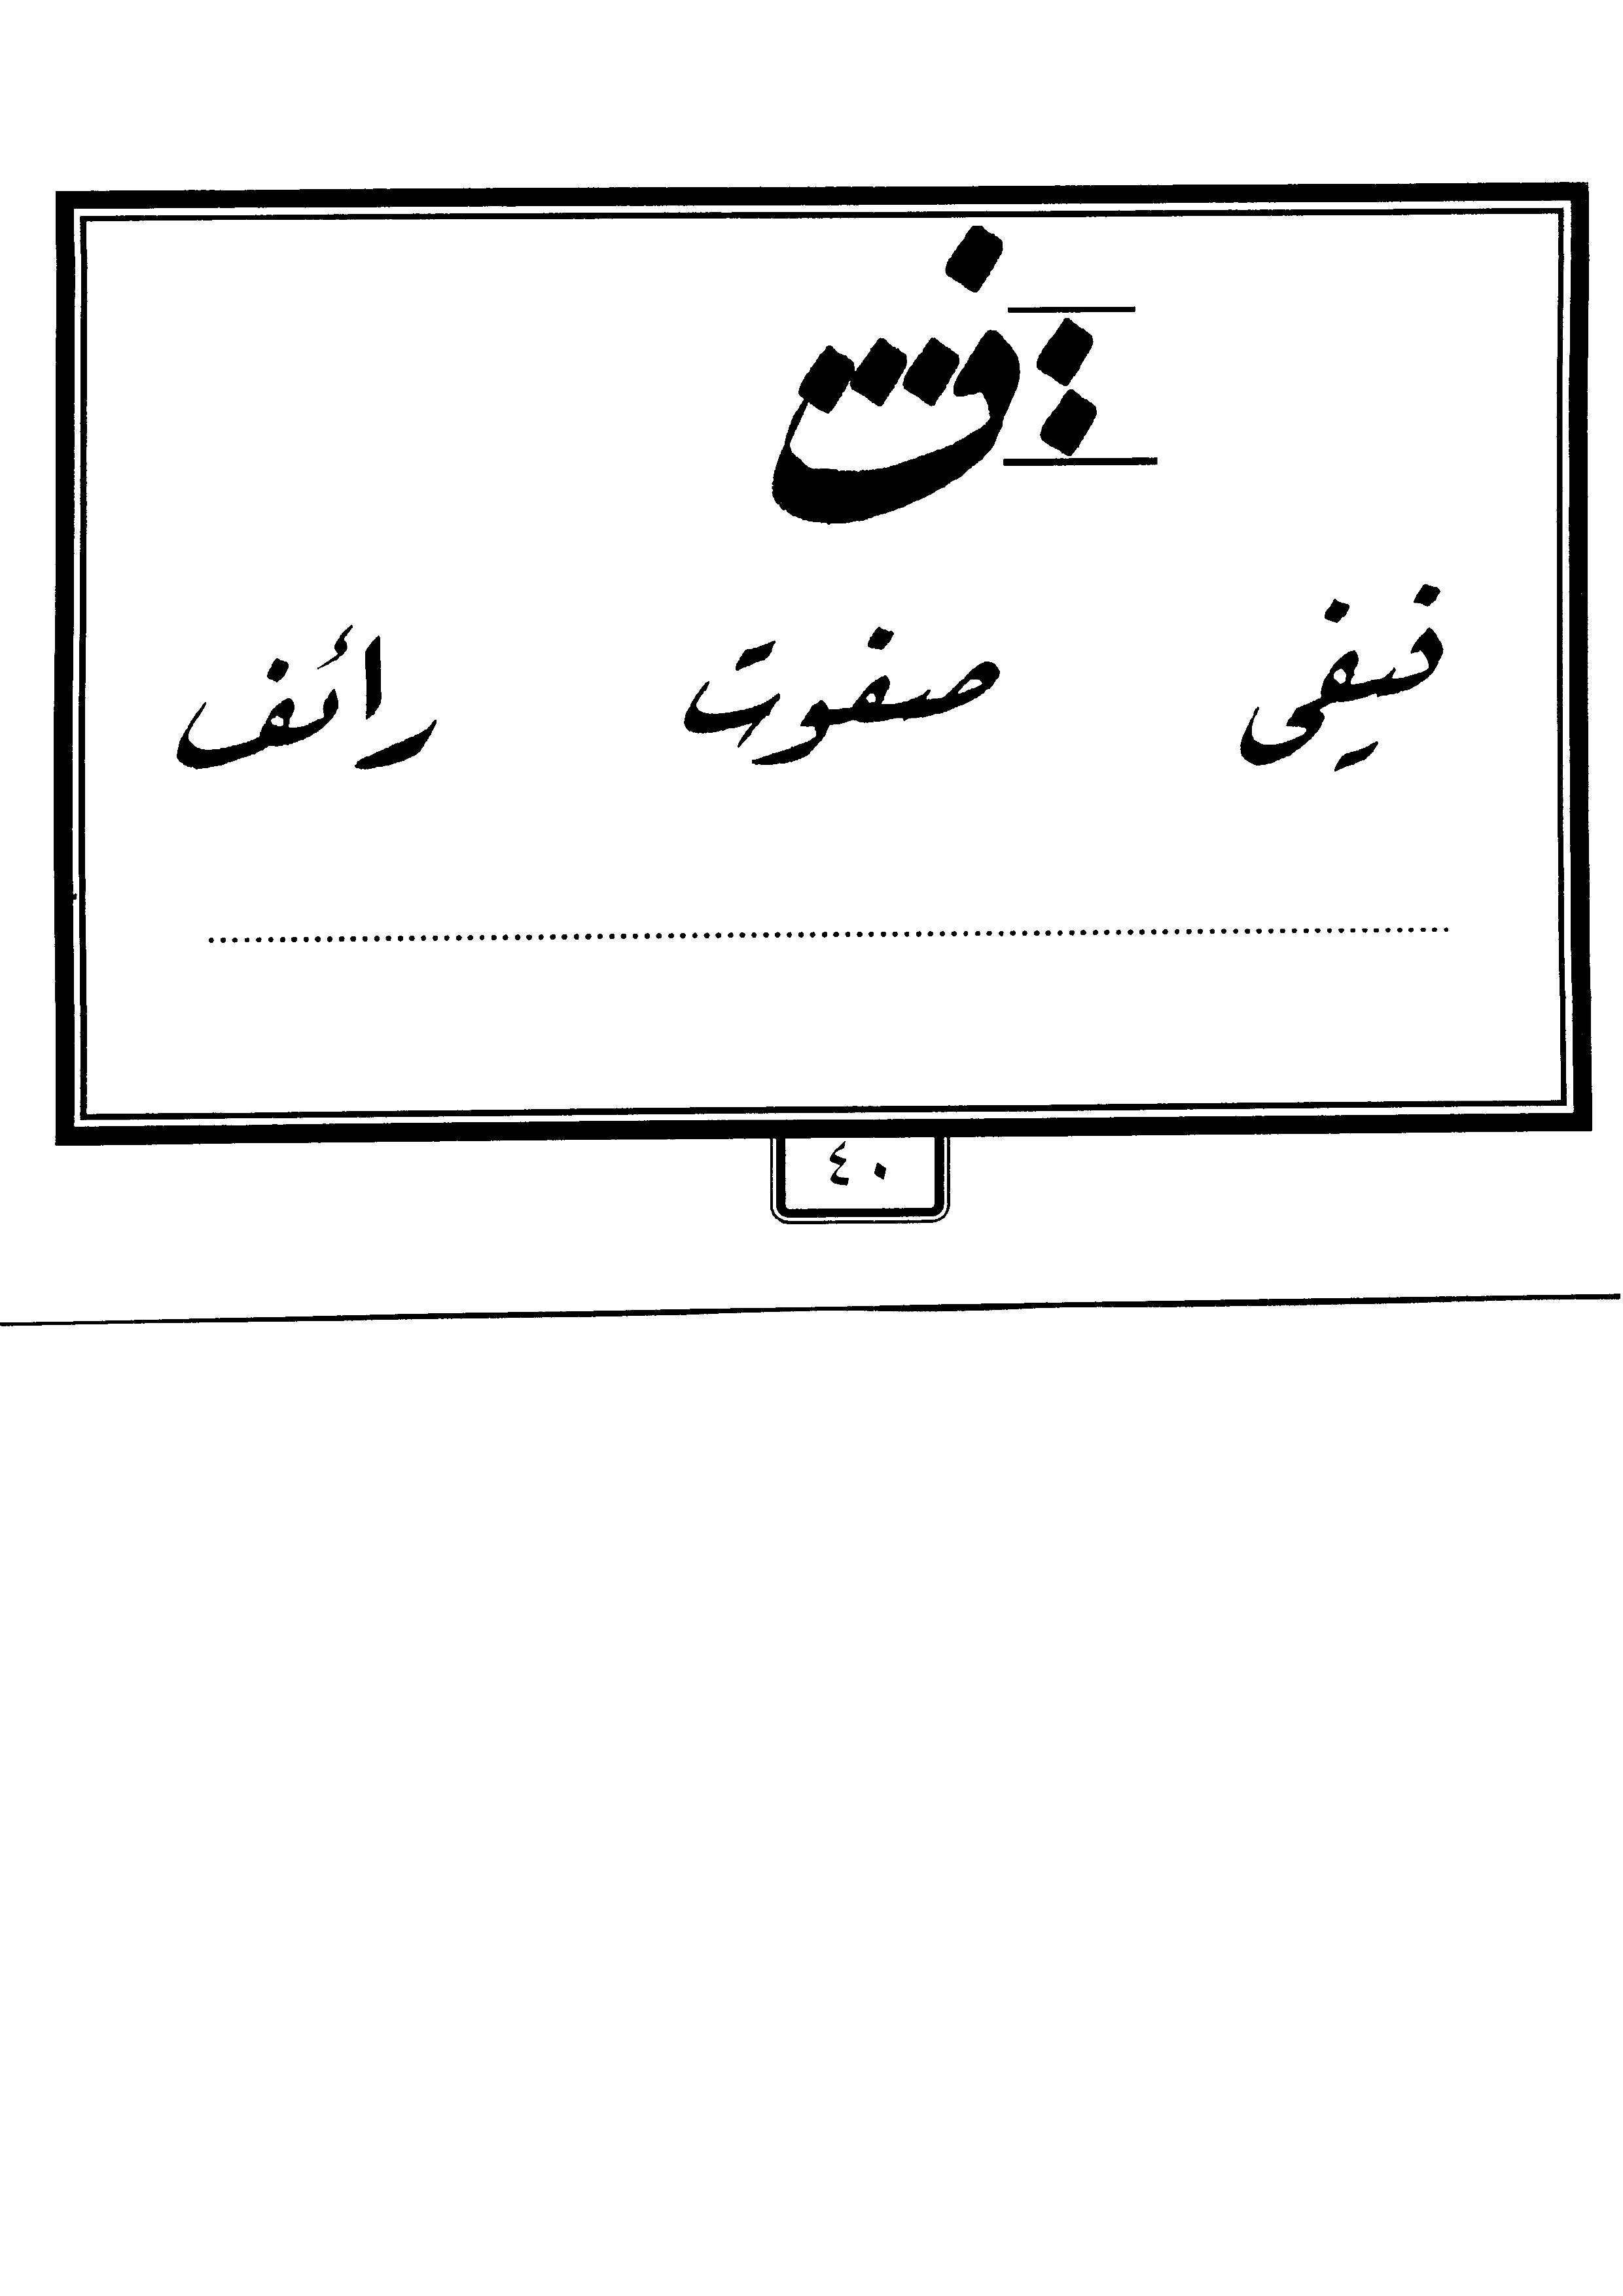 ف
فيفى صفوت رائف
٤٠